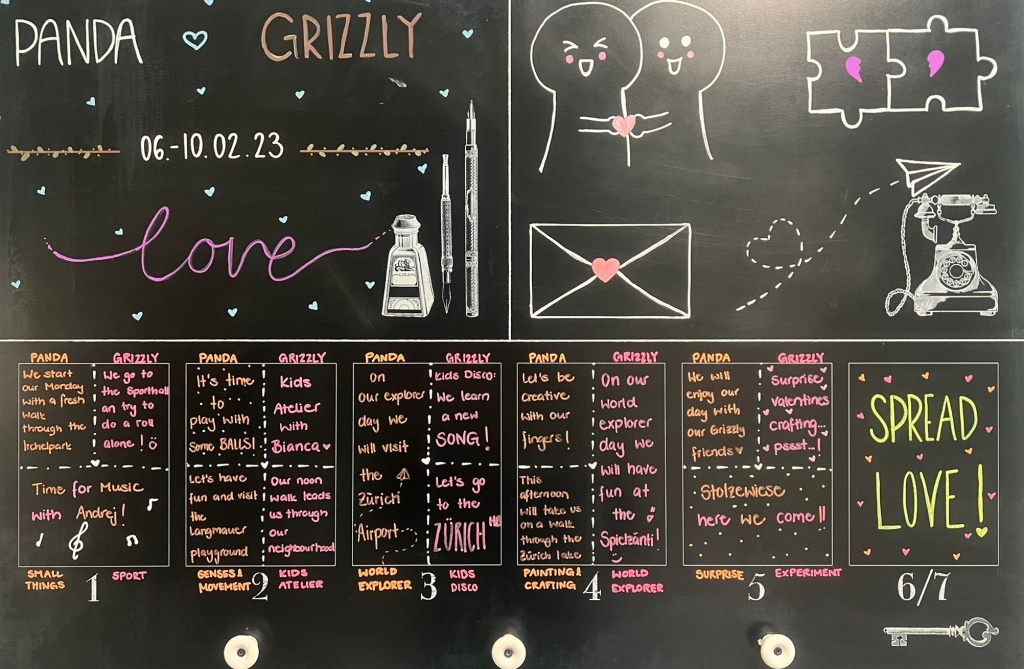 PANDA
GRIZZLY
06.-10.02.23
love
PANDA
GRIZZLY
We start
our Monday
with a fresh
walk
through the
Irchelpark
We go to
the Sporthall
an try to
do a roll
alone!
Time for Music
with Andrej!
SMALL
THINGS
1
SPORT
PANDA
GRIZZLY
It's time
to
play with
some BALLS!
Kids
Atelier
with
Bianca
Let's have
fun and visit
the
langmauer
playground
Our noon
walk leads
us through
our
neighbourhood
SENSES &
MOVEMENT
2
KIDS
ATELIER
PANDA
GRIZZLY
on
our explorer
day we
will visit
the
Zürich
Airport
Kids Disco:
We learn
a new
SONG!
Let's go
to the
ZÜRICH HB
WORLD
EXPLORER
3
KIDS
DISCO
PANDA
GRIZZLY
Let's be
creative
with our
fingers!
This
afternoon
will take us
on a walk
through the
Zürich lake
On our
world
explorer
day we
will have
fun at
the
Spielzänti!
PAINTING &
CRAFTING
4
WORLD
EXPLORER
PANDA
GRIZZLY
We will
enjoy our
day with
our Grizzly
friends
Surprise,
valentines
crafting...
pssst..!
Stolzewiese
here we come!!
SURPRISE
5
EXPERIMENT
SPREAD
LOVE!
6/7